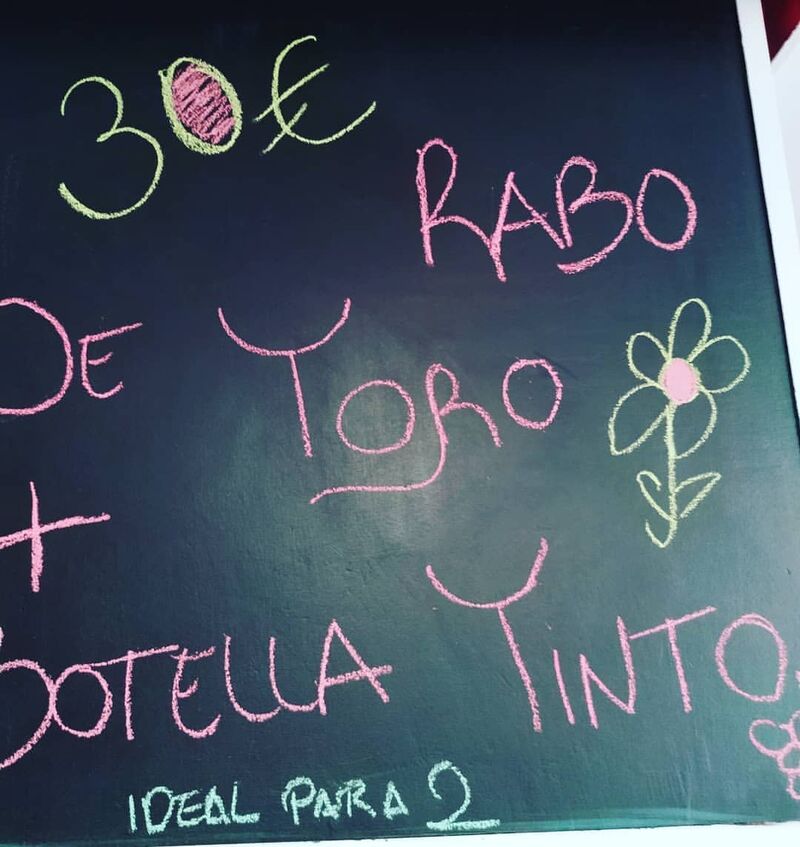 30€
RABO
DE TORO
+
BOTELLA TINTO
IDEAL PARA 2